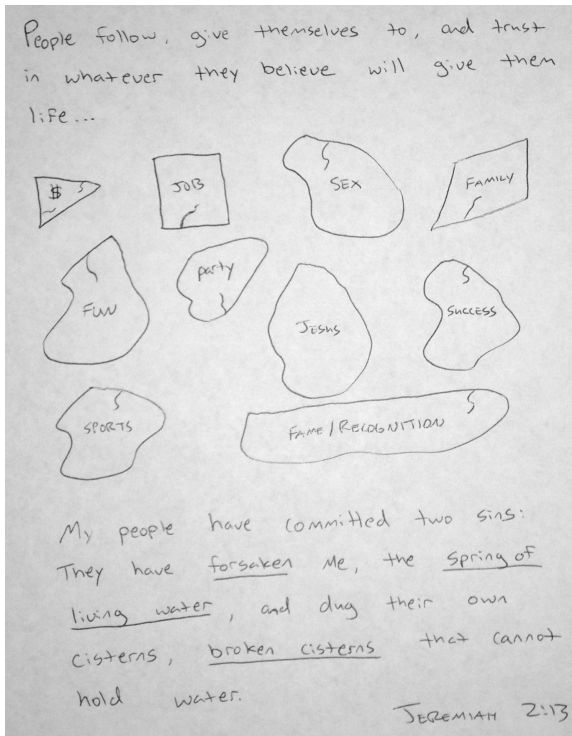 People follow, give themselves to, and trust
in whatever they believe will give them
life...
$
JOB
SEX
FAMILY
FUN
party
JESUS
SUCCESS
SPORTS
FAME/RECOGNITION
My people have committed two sins:
They have forsaken Me, the spring of
living water, and dug their own
cisterns, broken cisterns that cannot
hold water.
JEREMIAH 2:13